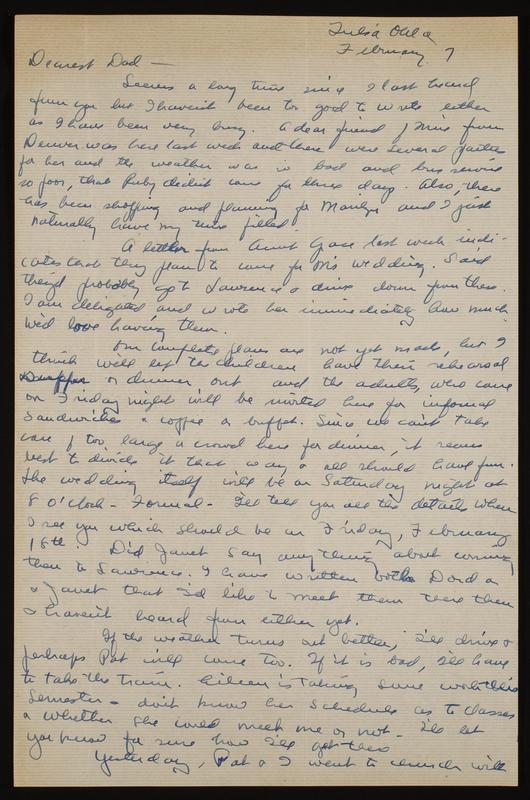 Tulsa Okla
February 7
Dearest Dad —
Seems a long time since I last heard
from you but I haven't been too good to write either
as I have been very busy. A dear friend of mine from
Denver was here last week and there were several parties
for her and the weather was so bad and bus service
so poor, that Ruby didn't come for three days. Also, there
has been shopping and planning for Marilyn and I just
naturally have my time filled.
A letter from Aunt Grace last week indi-
cates that they plan to come for M's wedding. Said
they'd probably go to Lawrence & drive down from there.
I am delighted and wrote her immediately how much
we'd love having them.
Our complete plans are not yet made, but I
think will let the children have their rehearsal
or dinner out and the adults, who come
on Friday night will be invited here for informal
sandwiches & coffee or buffet. Since we can't take
care of too large a crowd here for dinner, it seems
best to divide it that way & all should have fun.
The wedding itself will be on Saturday night at
8 o'clock - Formal - I'll tell you all the details when
I see you which should be on Friday, February
18th. Did Janet say anything about coming
then to Lawrence. I have written both
& Janet that I'd like to meet them there then
& haven't heard from either yet.
If the weather turns out better, I'll drive &
perhaps Pat will come too. If it is bad, I'll have
to take the train. Eileen is taking some work this
semester & don't know her schedule as to classes
& whether she could meet me or not - I'll let
you know for sure how I'll get there
Yesterday, Pat & I went to church with